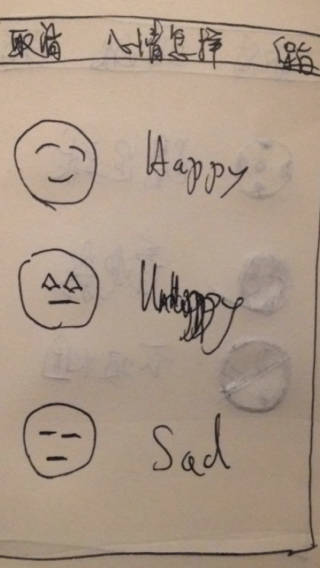 取消 心情选择
Happy
Unhappy
Sad